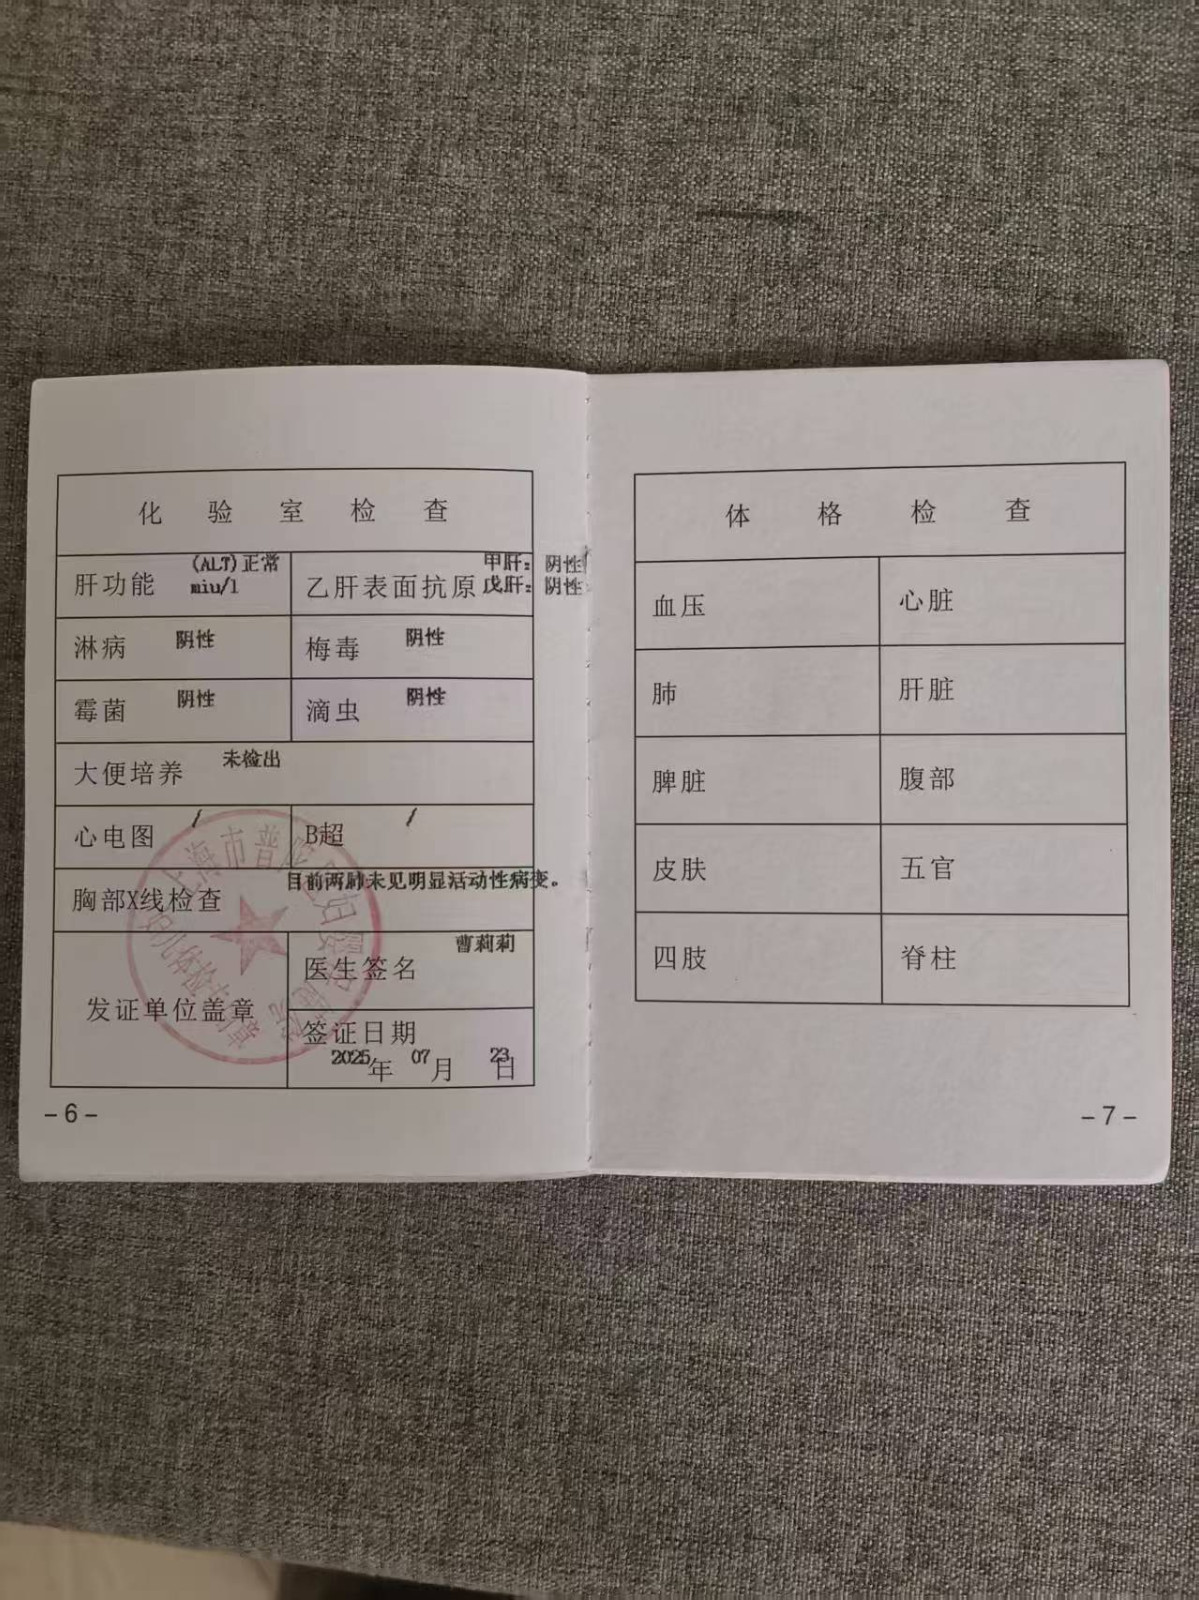 化验室检查
肝功能 (ALT)正常 miu/l
乙肝表面抗原 甲肝：阴性 戊肝：阴性
淋病 阴性
梅毒 阴性
霉菌 阴性
滴虫 阴性
大便培养 未检出
心电图 /
B超 /
胸部X线检查 目前两肺未见明显活动性病变。
发证单位盖章
医生签名 曹莉莉
签证日期
2025年 07月 23日
上海市普陀区妇婴保健院
妇儿体检专用章
-6-
体格检查
血压
心脏
肺
肝脏
脾脏
腹部
皮肤
五官
四肢
脊柱
-7-